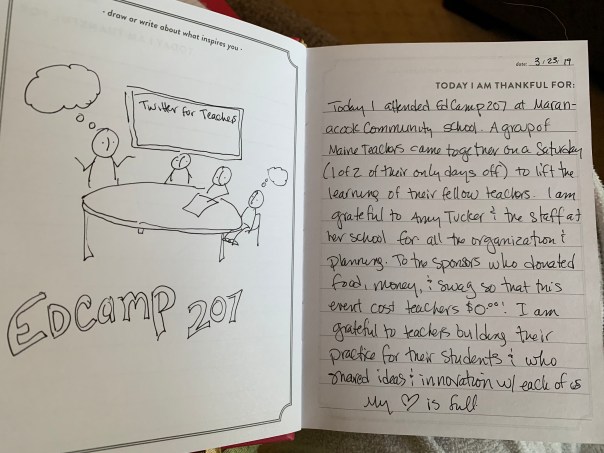 · draw or write about what inspires you ·
Twitter for Teachers
EDCAMP 207
date: 3.23.19
TODAY I AM THANKFUL FOR:
Today I attended EdCamp207 at Maran-
acook Community School. A group of
Maine Teachers came together on a Saturday
(1 of 2 of their only days off) to lift the
learning of their fellow teachers. I am
grateful to Amy Tucker & the staff at
her school for all the organization &
planning. To the sponsors who donated
food, money, & swag so that this
event cost teachers $0⁰⁰! I am
grateful to teachers building their
practice for their students & who
shared ideas & innovation w/ each of us
My ♡ is full